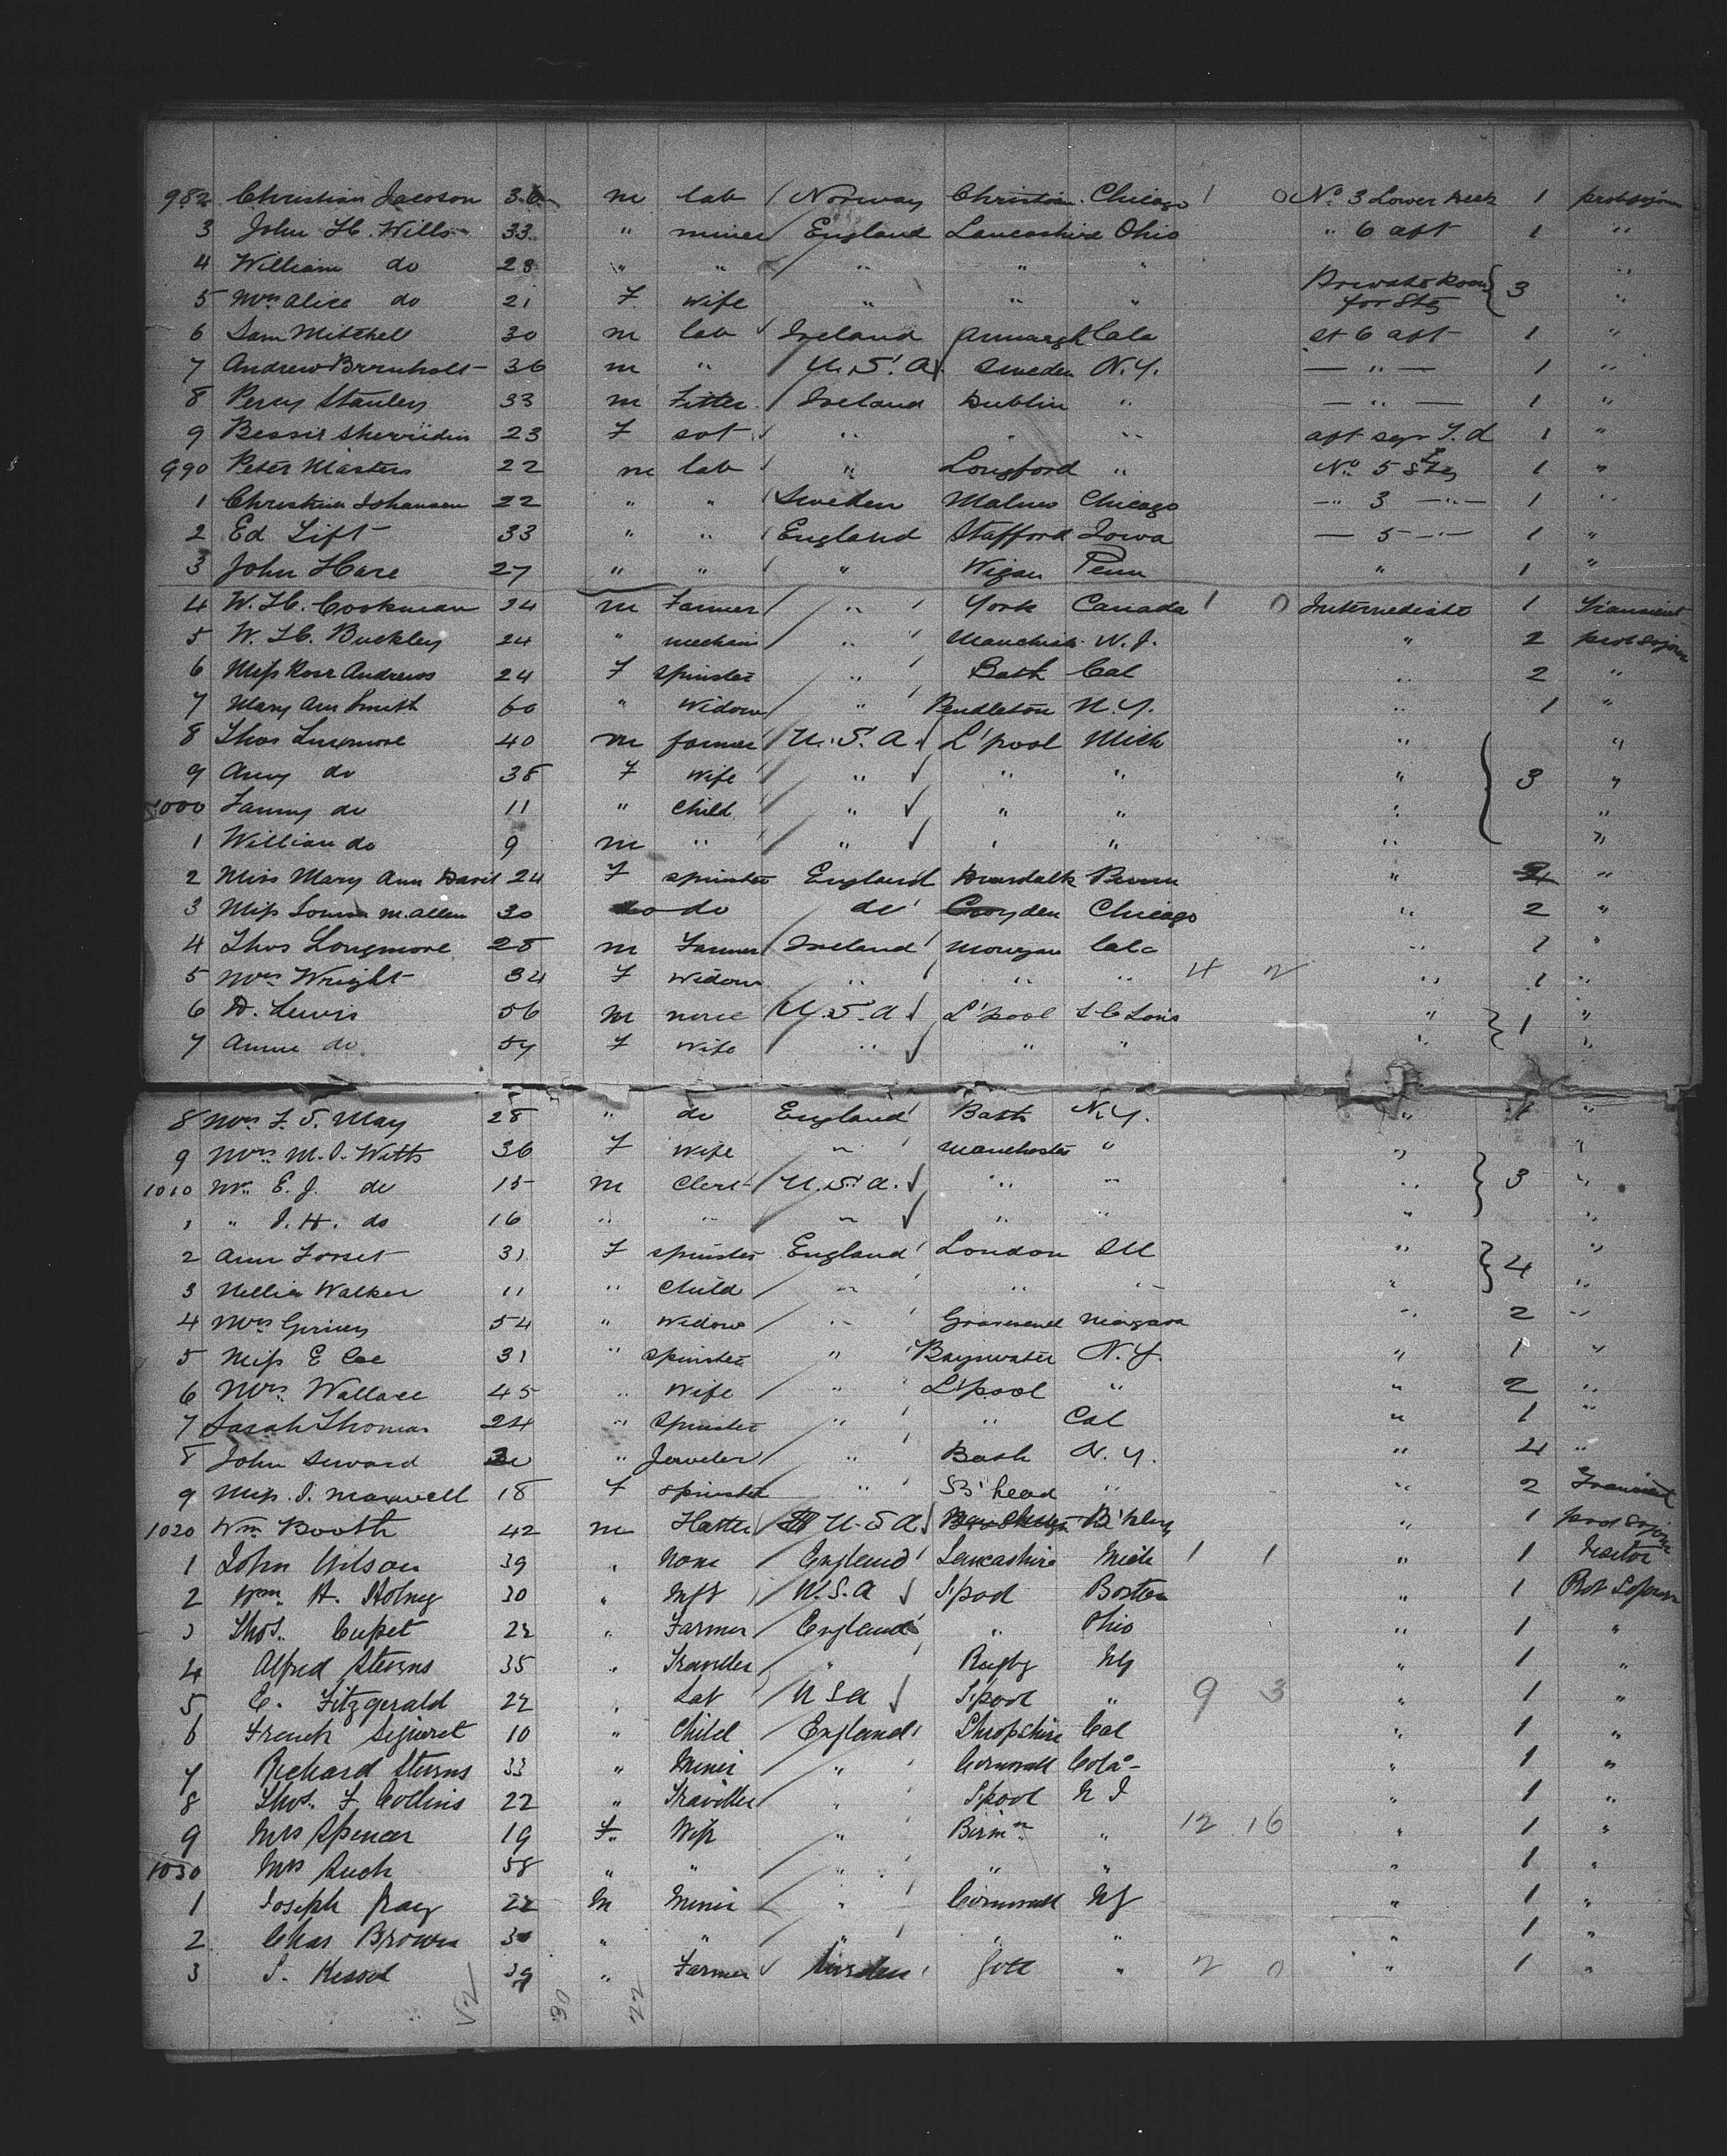 982 Christian Jacobson 36 m lab Norway Christian. Chicago 1 0 No. 3 Lower Deck 1 prob sojourn
3 John H. Wills 33 " miner England Lancashire Ohio " 6 aft 1 "
4 William do 28 " " " " "
5 Mrs Alice do 21 F Wife " " " Private Room for Stg 3 "
6 Sam Mitchell 30 m lab Ireland Armargh Cala st 6 aft 1 "
7 Andrew 36 m " U.S.A. Sweden N.Y. — " — 1 "
8 Percy Stanley 33 m Fitter Ireland Dublin " — " — 1 "
9 Bessie 23 F " " " aft 1 "
990 Peter Masters 22 m lab " Longford " No. 5 Stg 1 "
1 Christian Johansen 22 " " Sweden Malmo Chicago — 3 — " — 1 "
2 Ed Lift 33 " " England Stafford Iowa — 5 — " — 1 "
3 John Hare 27 " " " Wigan Penn " 1 "
4 W. H. Cookman 24 m Farmer " York Canada 1 0 Intermediate 1 Transient
5 W. H. Buckley 24 " mechanic " Manchester N.J. " 2 prob sojourn
6 Miss Rose Andrews 24 F Spinster " Bath Cal " 2 "
7 Mary Ann Smith 60 " Widow " Pendleton N.Y. " 1 "
8 Thos 40 m farmer U.S.A. L'pool Mich " "
9 Amy do 38 F Wife " " " " 3 "
1000 Fanny do 11 " Child " " " " "
1 William do 9 m " " " " " "
2 Miss Mary Ann David 24 F spinster England Penn " "
3 Miss Louisa M. Allen 30 do do Croyden Chicago " 2 "
4 Thos Longmore 28 m Farmer Ireland Cala " 1 "
5 Mrs Wright 34 F Widow " " " 4 2 " 1 "
6 D. Lewis 56 m none U.S.A L'pool St Louis " 1 "
7 Annie do 54 F Wife " " " " "
8 Mrs F. S. May 28 " do England Bath N.Y. " 1 "
9 Mrs M. J. Watts 36 F Wife " Manchester " " "
1010 Mr. E. J. do 15 m Clerk U.S.A. " " " 3 "
1 " J. H. do 16 " " " " " " "
2 Ann Forset 31 F spinster England London Ill " 4 "
3 Nellie Walker 11 " Child " " " " "
4 Mrs 54 " Widow " Gravesend Niagara " 2 "
5 Miss E Coe 31 " Spinster " Bayswater N.Y. " 1 "
6 Mrs. Wallace 45 " Wife " L'pool " " 2 "
7 Sarah Thomas 24 " Spinster " " Cal " 1 "
8 John Seward " Jeweler " Bath N.Y. " 4 "
9 Miss J. Maxwell 18 F spinster " B'head " " 2 Transient
1020 Wm Booth 42 m Hatter U.S.A B'klyn " 1 prob sojourn
1 John Wilson 39 " None England Lancashire Mich 1 1 " 1 Visitor
2 Wm. H. 30 " U.S.A L'pool Boston " 1 Prob Sojourn
3 Thos. 22 " Farmer England " Ohio " 1 "
4 Alfred Sterns 35 " Traveller " Rugby NY " 1 "
5 C. Fitzgerald 22 " Lab U S A L'pool " 9 3 " 1 "
6 10 " Child England Shropshire Cal " 1 "
7 Richard Sterns 33 " Miner " Cornwall Colo " 1 "
8 Thos. F Collins 22 " Traveller " L'pool N J " 1 "
9 Mrs Spencer 19 F Wife " Birmn " 12 16 " 1 "
1030 Mrs Such 58 " " " " " " 1 "
1 Joseph Gray 22 M Miner " Cornwall NJ " 1 "
2 Chas Brown 30 " " " " " " 1 "
3 S. Kessel 39 " Farmer Sweden Gott " 2 0 " 1 "
52 30 22